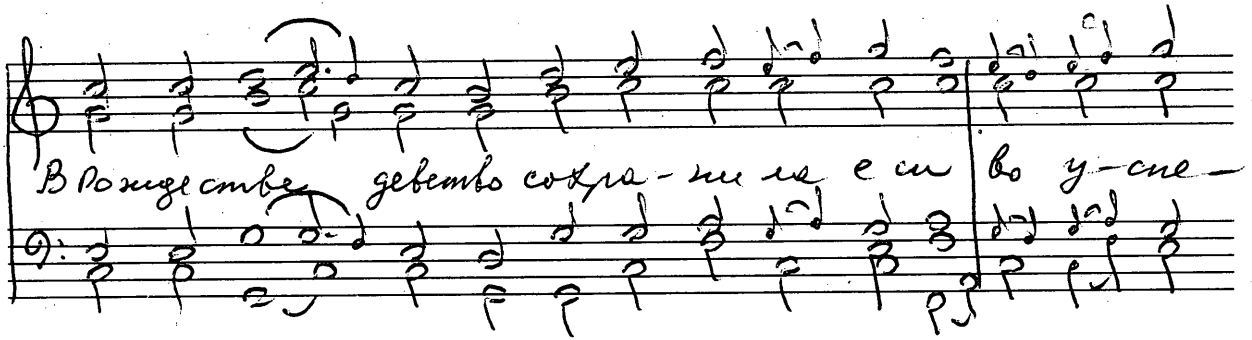 В Рождестве девство сохра-ни ла е си во у-спе-